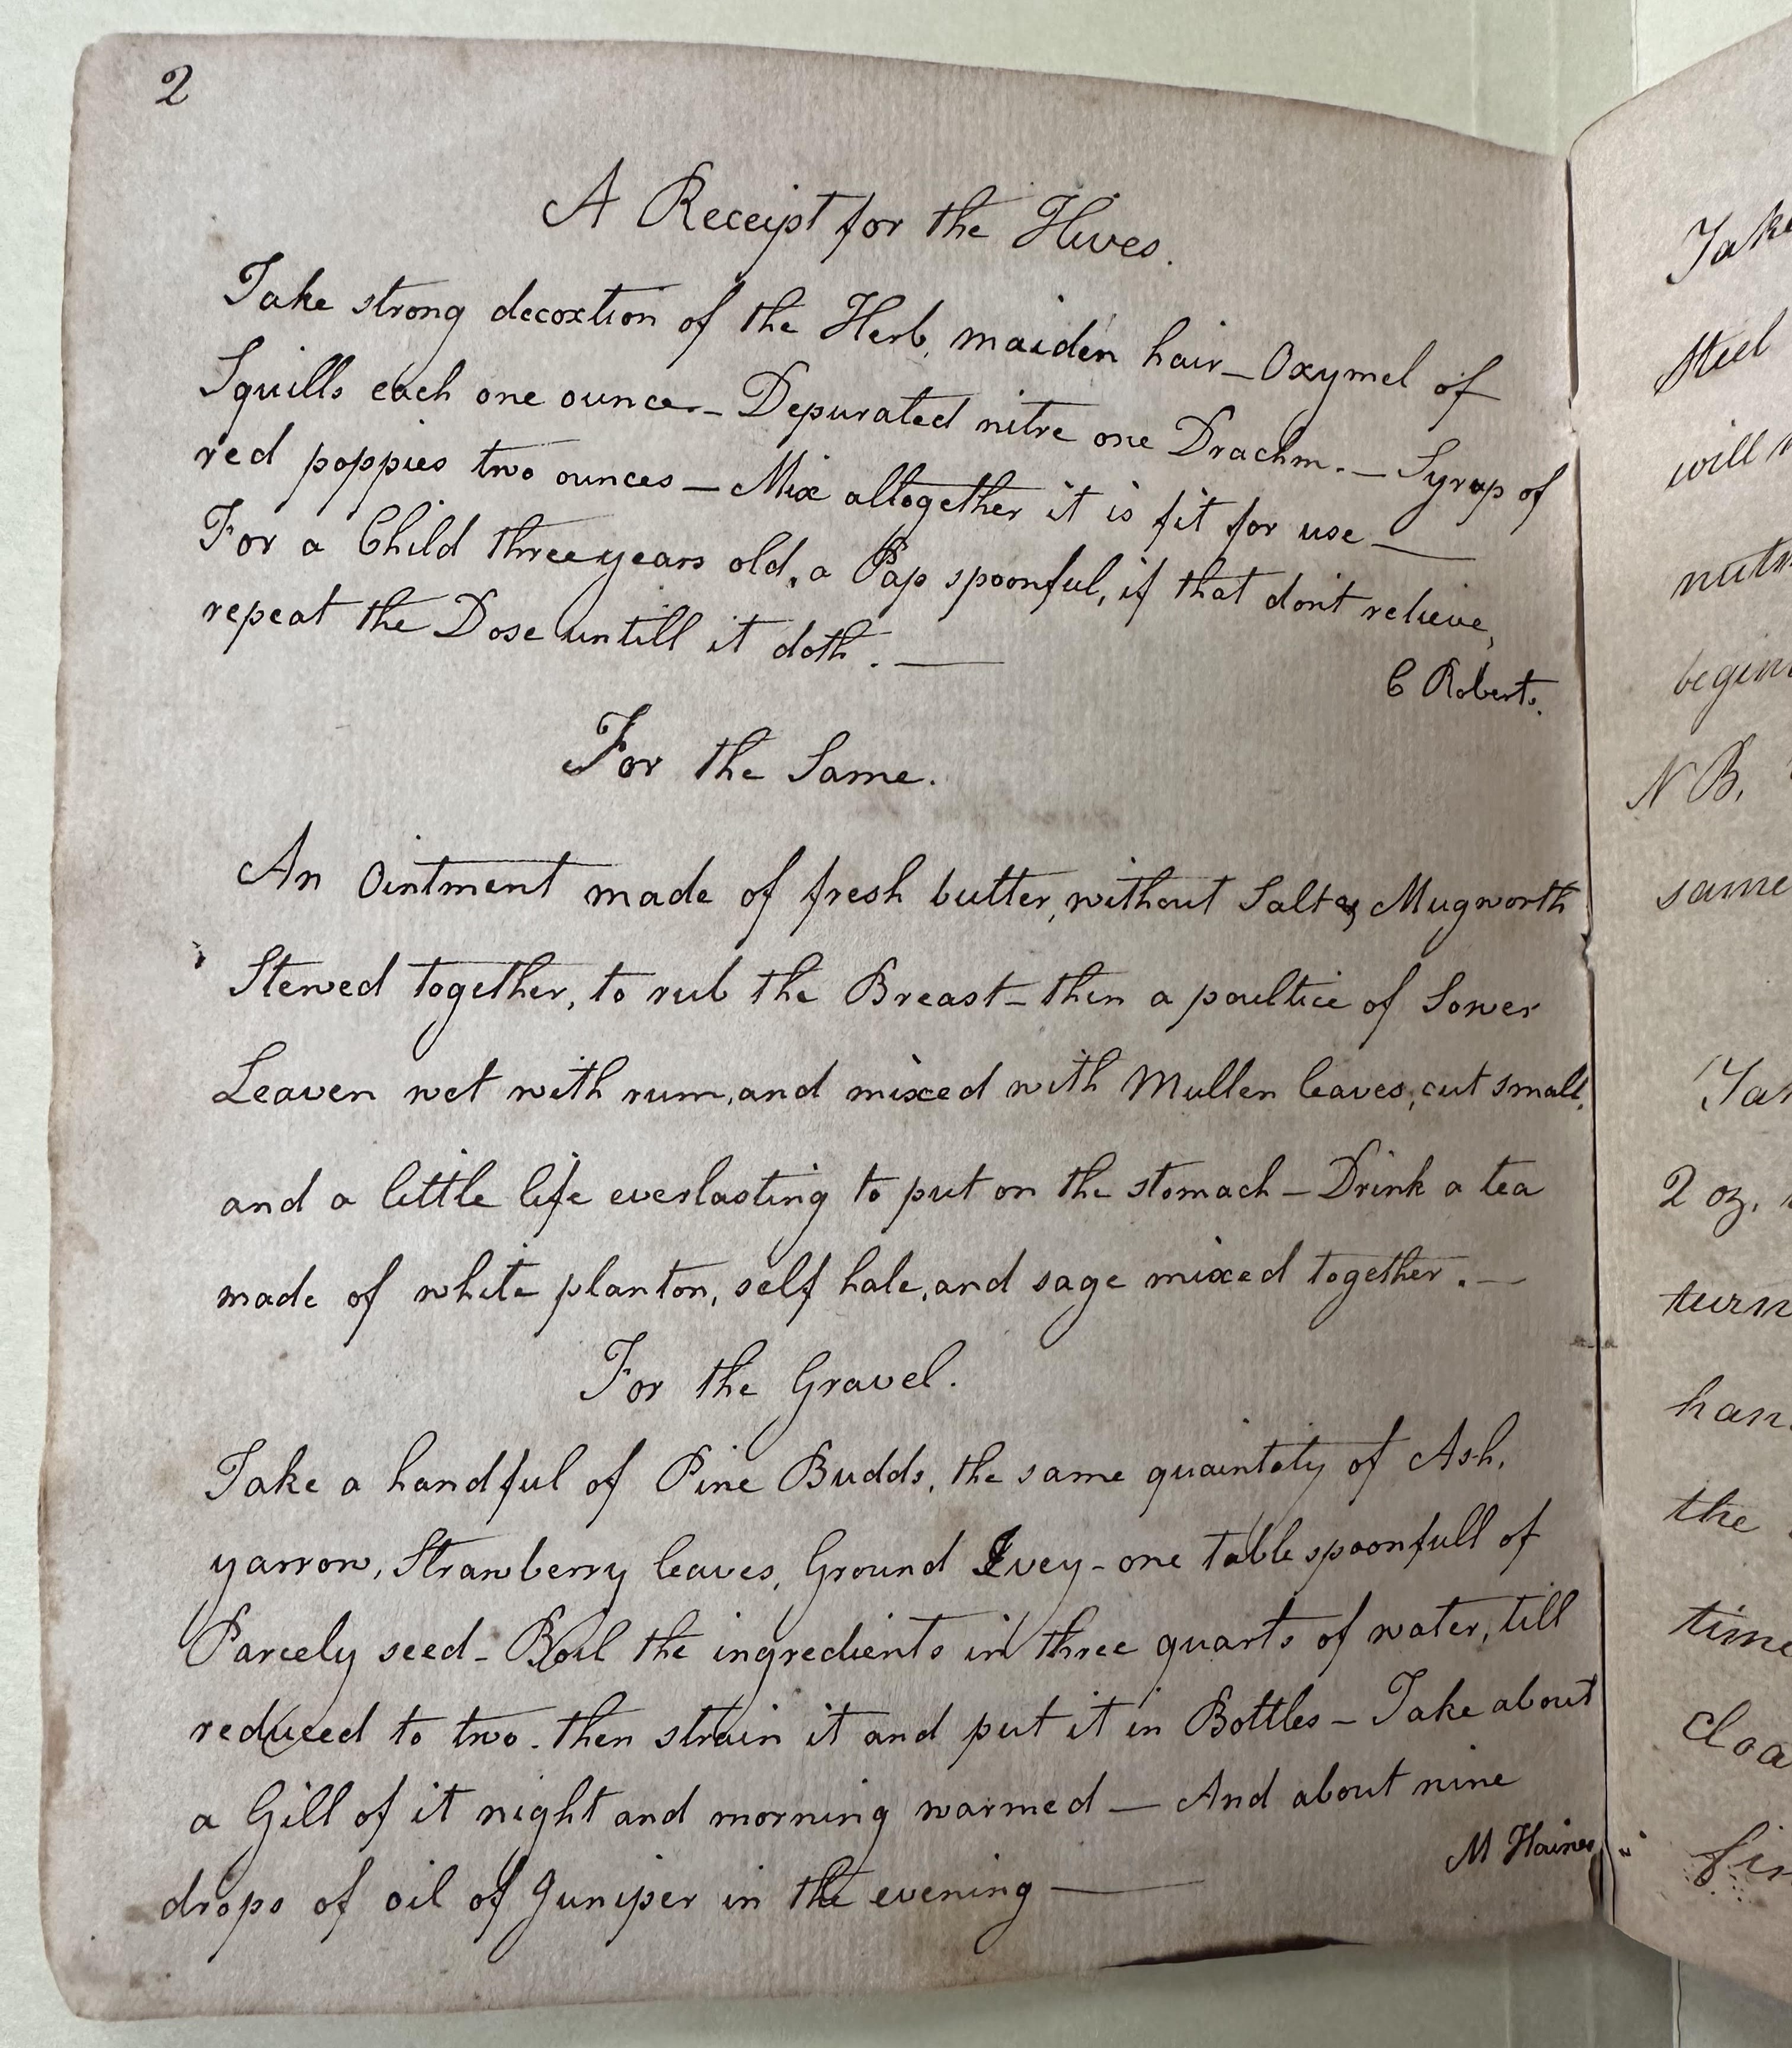 2
A Receipt for the Hives.
Take strong decoxtion of the Herb, maiden hair – Oxymel of
Squills each one ounce – Depurated nitre one Drachm. – Syrup of
red poppies two ounces – Mix altogether it is fit for use —
For a Child three years old, a Pap spoonful, if that dont relieve,
repeat the Dose untill it doth. —
C Roberts.
For the Same.
An Ointment made of fresh butter, without Salt & Mugworth
Stewed together, to rub the Breast – then a poultice of Sower
Leaven wet with rum, and mixed with Mullen leaves, cut small,
and a little life everlasting to put on the stomach – Drink a tea
made of white planton, self hale, and sage mixed together. —
For the Gravel.
Take a handful of Pine Budds, the same quaintety of Ash,
yarrow, Strawberry leaves, Ground Ivey – one table spoonfull of
Parcely seed – Boil the ingredients in three quarts of water, till
reduced to two. then strain it and put it in Bottles – Take about
a Gill of it night and morning warmed — And about nine
drops of oil of Juniper in the evening —
M Haines
Take
Steel
will
N B.
same
2 oz.
turn
the
time